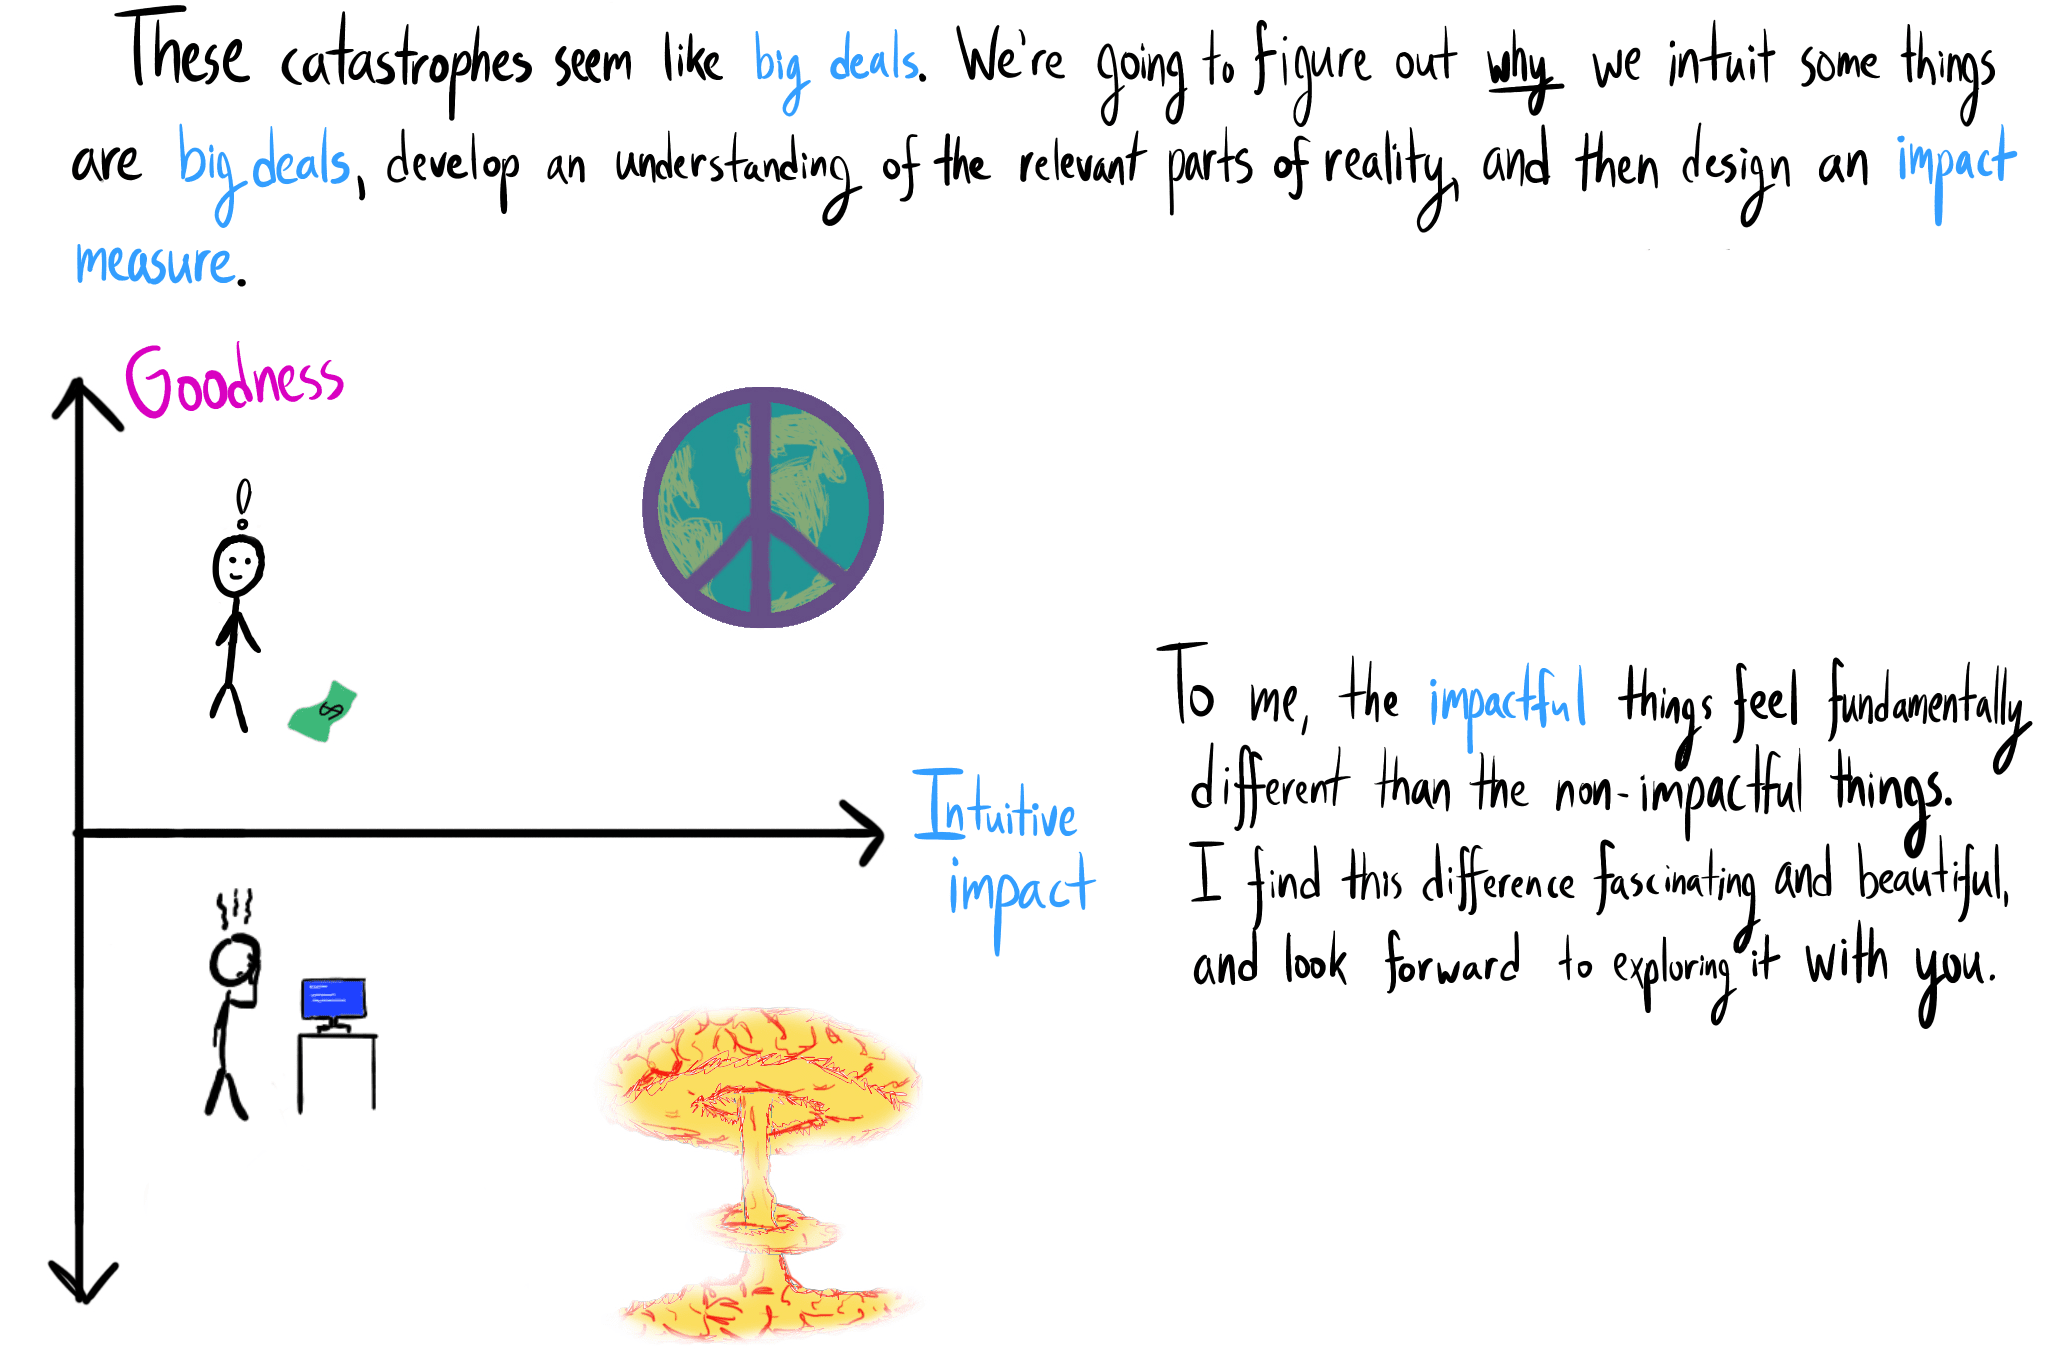 These catastrophes seem like big deals. We're going to figure out why we intuit some things
are big deals, develop an understanding of the relevant parts of reality, and then design an impact
measure.
Goodness
!
$
Intuitive
impact
To me, the impactful things feel fundamentally
different than the non-impactful things.
I find this difference fascinating and beautiful,
and look forward to exploring it with you.